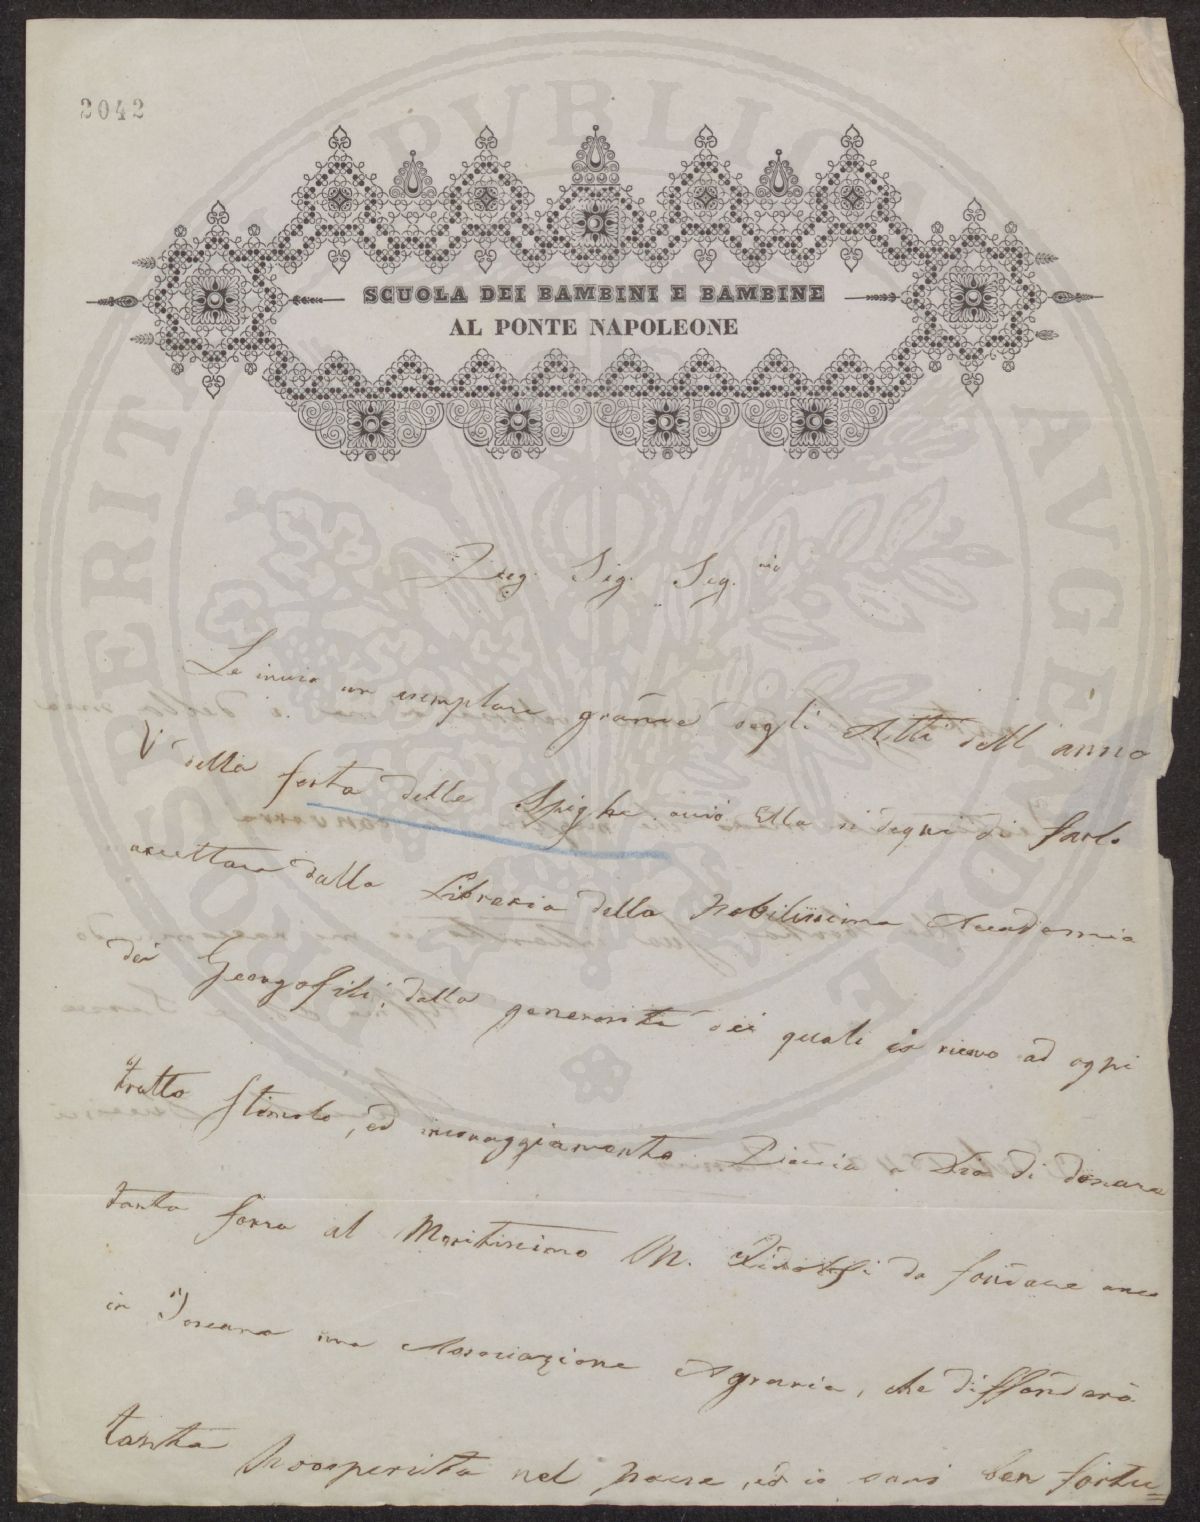 2042
SCUOLA DEI BAMBINI E BAMBINE
AL PONTE NAPOLEONE
Sig. Seg.rio
Le invio un esemplare grande degli Atti dell' anno
V della festa delle Spighe acciò Ella si degni di farlo
accettare dalla Libreria della Nobilissima Accademia
dei Georgofili, dalla generosità dei quali io ricevo ad ogni
tratto stimolo, ed incoraggiamento. Piaccia a Dio di donare
tanta forza al Meritissimo M. Ridolfi da fondare anco
in Toscana una Associazione Agraria, che diffonderà
tanta prosperità nel paese, ed io sarò ben fortu=
PROSPERITATI PUBLICAE AUGENDAE